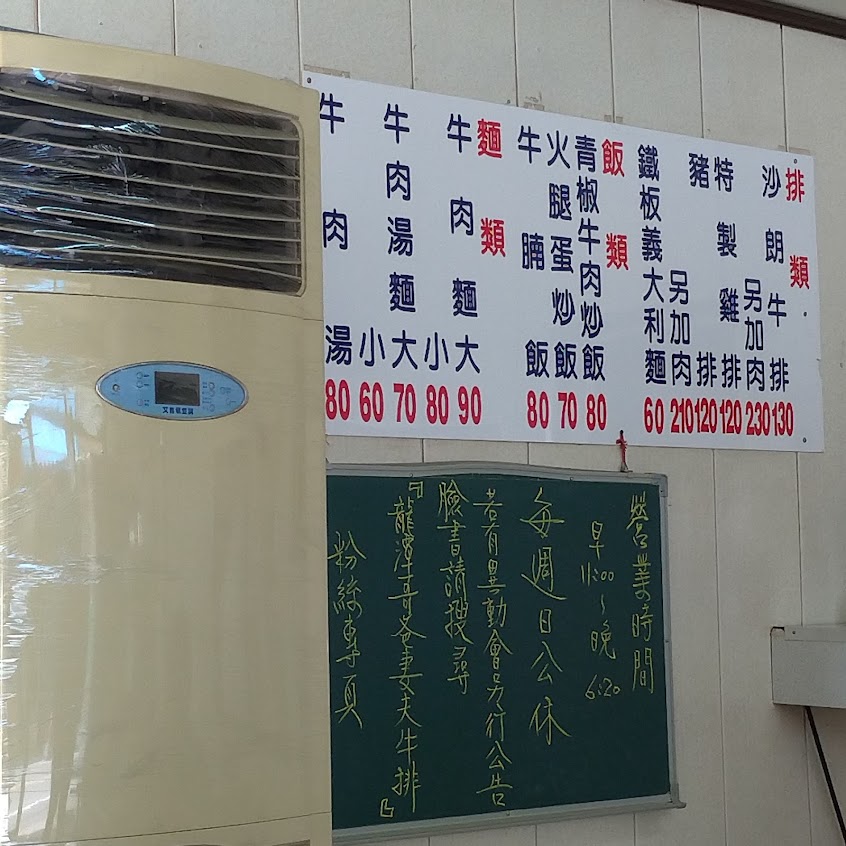 排類
沙朗牛排 130
另加肉 230
特製雞排 120
豬排 120
另加肉 210
鐵板義大利麵 60
飯類
青椒牛肉炒飯 80
火腿蛋炒飯 70
牛腩飯 80
麵類
牛肉麵 大 90
小 80
牛肉湯麵 大 70
小 60
牛肉湯 80
營業時間
早11:00~晚6:20
每週日公休
若有異動會另行公告
臉書請搜尋
『龍潭哥爸妻夫牛排』
粉絲專頁